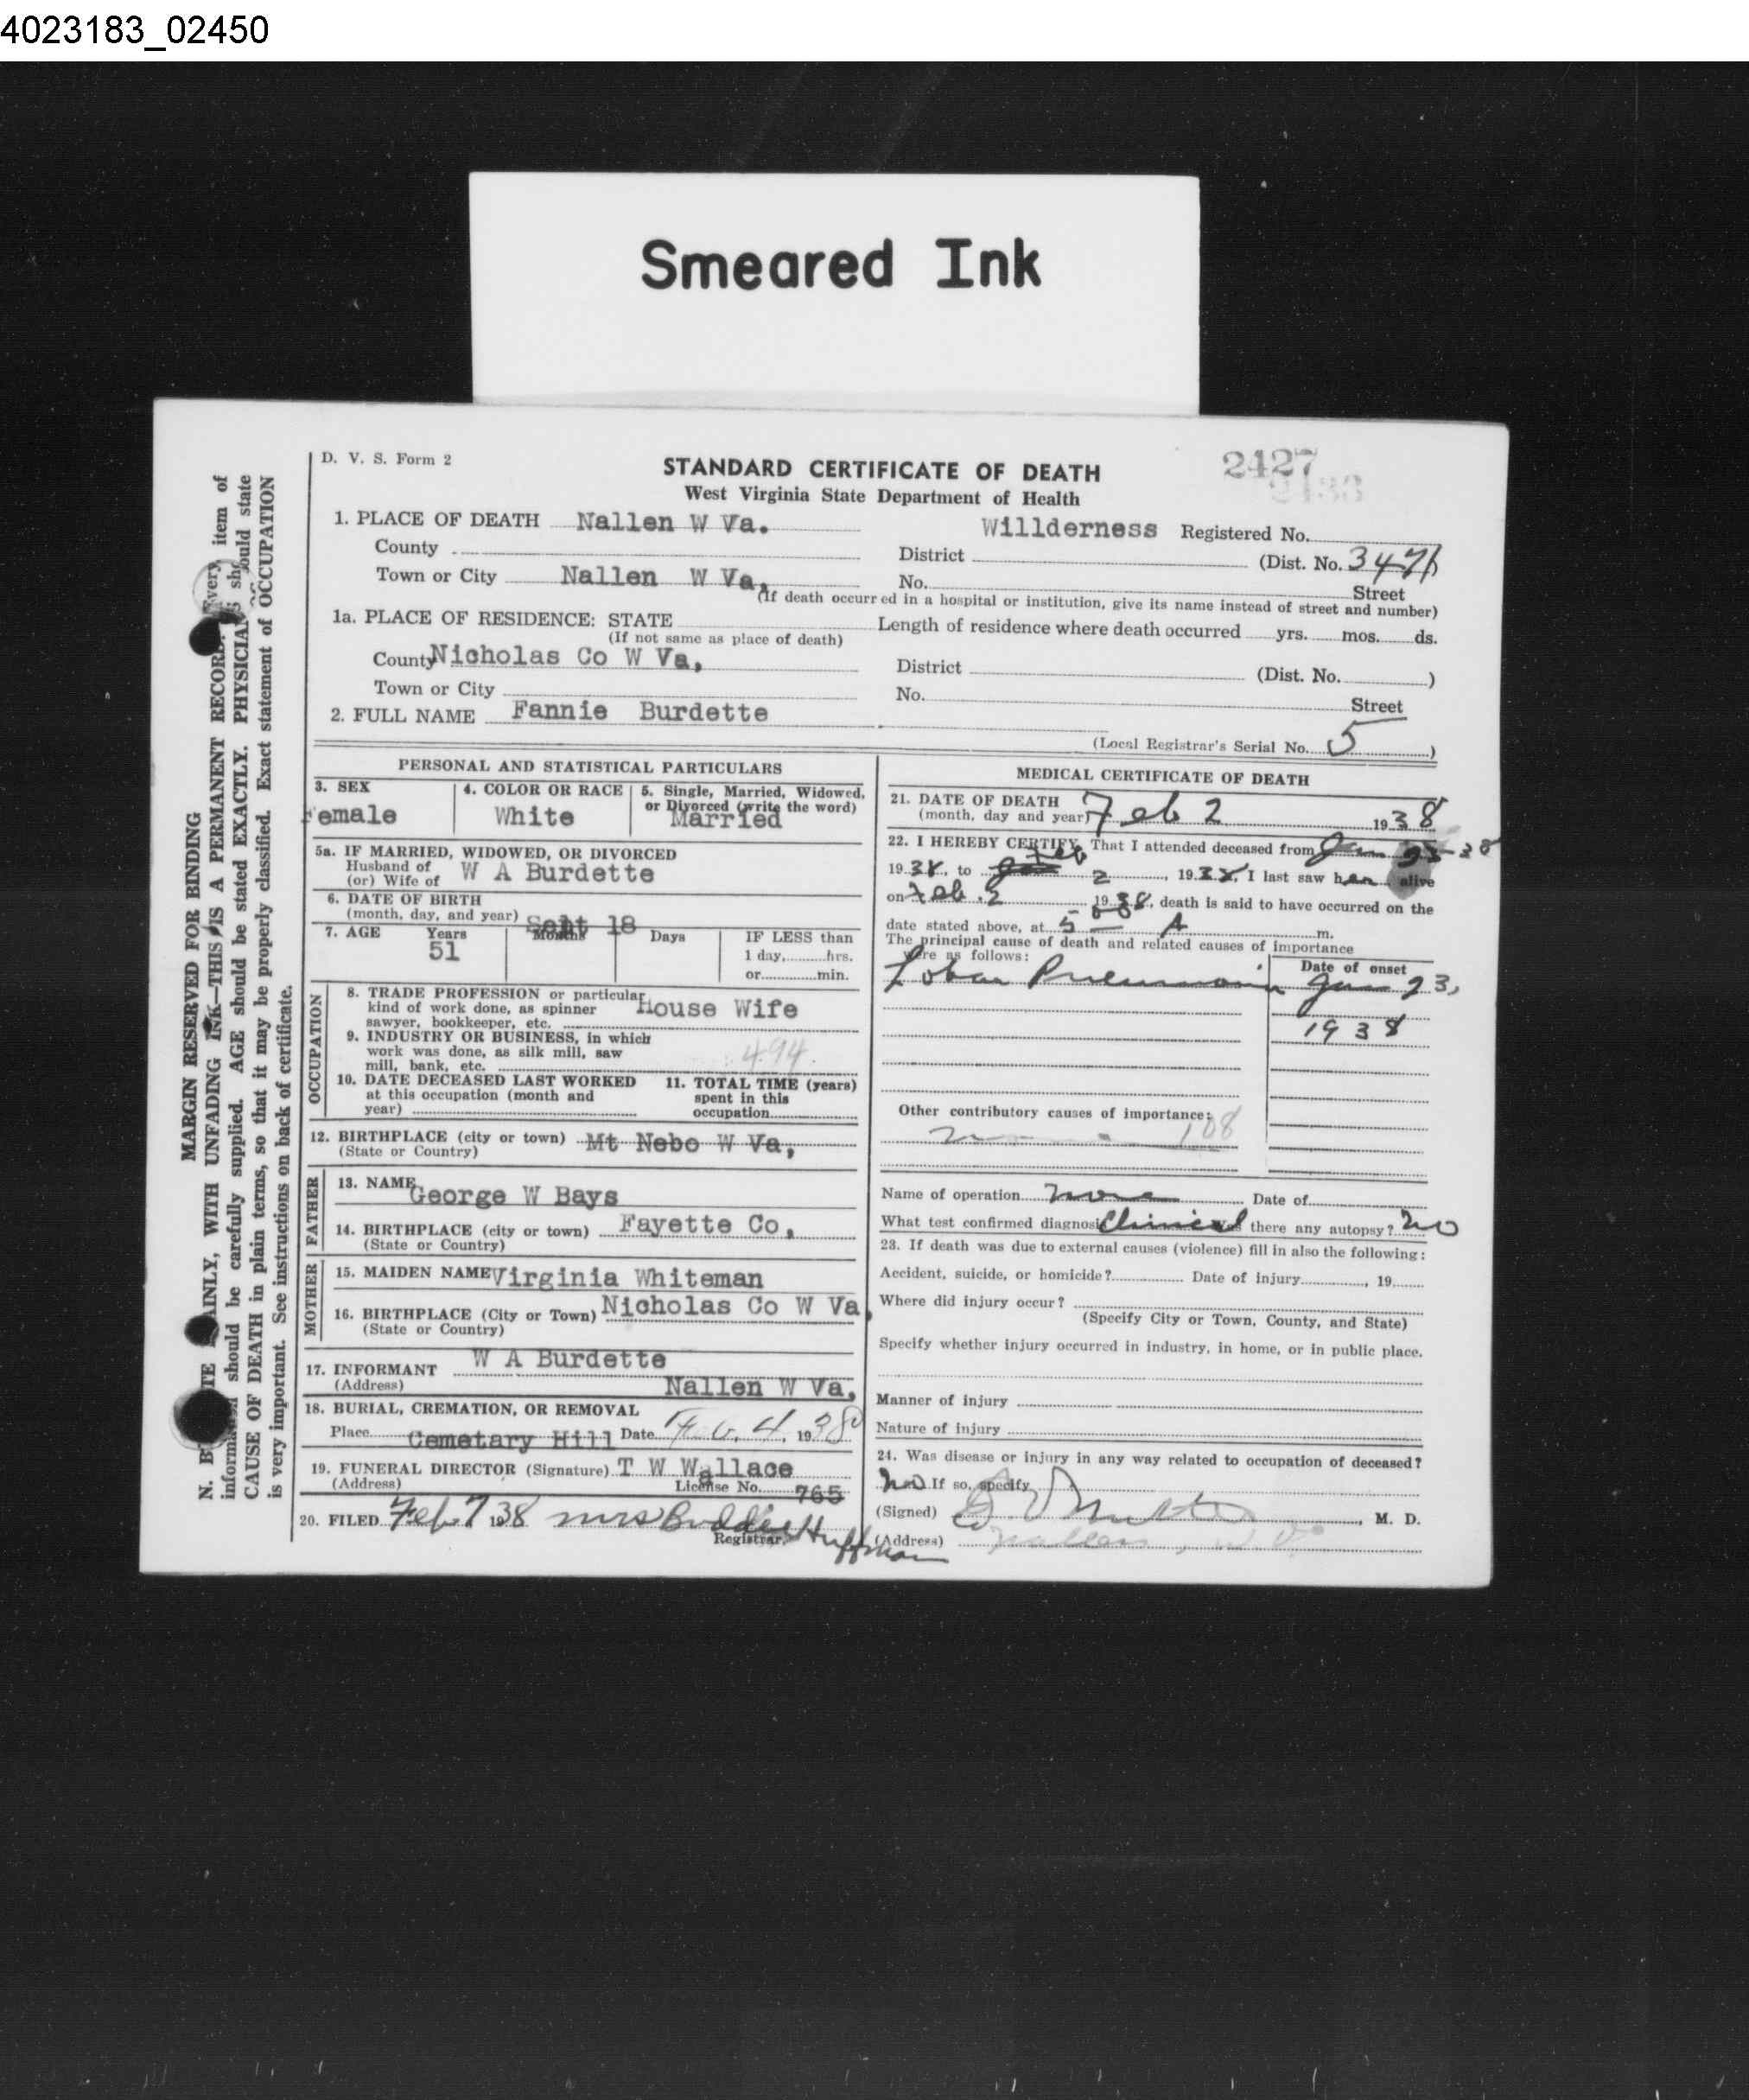 4023183_02450
Smeared Ink
D. V. S. Form 2
STANDARD CERTIFICATE OF DEATH
2427
West Virginia State Department of Health
1. PLACE OF DEATH Nallen W Va. Willderness Registered No.
County District (Dist. No. 3476
Town or City Nallen W Va, No. Street
(If death occurred in a hospital or institution, give its name instead of street and number)
1a. PLACE OF RESIDENCE: STATE Length of residence where death occurred yrs. mos. ds.
(If not same as place of death)
County Nicholas Co W Va, District (Dist. No. )
Town or City No. Street
2. FULL NAME Fannie Burdette
(Local Registrar's Serial No. 5 )
MARGIN RESERVED FOR BINDING
AINLY, WITH UNFADING INK—THIS IS A PERMANENT RECORD. Every item of
should be carefully supplied. AGE should be stated EXACTLY. PHYSICIANS should state
CAUSE OF DEATH in plain terms, so that it may be properly classified. Exact statement of OCCUPATION
is very important. See instructions on back of certificate.
PERSONAL AND STATISTICAL PARTICULARS
3. SEX
Female
4. COLOR OR RACE
White
5. Single, Married, Widowed,
or Divorced (write the word)
Married
5a. IF MARRIED, WIDOWED, OR DIVORCED
Husband of
(or) Wife of W A Burdette
6. DATE OF BIRTH
(month, day, and year) Sept 18
7. AGE Years Months Days IF LESS than
51 1 day, hrs.
or min.
OCCUPATION
8. TRADE PROFESSION or particular
kind of work done, as spinner House Wife
sawyer, bookkeeper, etc.
9. INDUSTRY OR BUSINESS, in which
work was done, as silk mill, saw 494.
mill, bank, etc.
10. DATE DECEASED LAST WORKED
at this occupation (month and
year)
11. TOTAL TIME (years)
spent in this
occupation
12. BIRTHPLACE (city or town) Mt Nebo W Va,
(State or Country)
FATHER
13. NAME George W Bays
14. BIRTHPLACE (city or town) Fayette Co,
(State or Country)
MOTHER
15. MAIDEN NAME Virginia Whiteman
16. BIRTHPLACE (City or Town) Nicholas Co W Va,
(State or Country)
17. INFORMANT W A Burdette
(Address) Nallen W Va,
18. BURIAL, CREMATION, OR REMOVAL
Place Cemetary Hill Date Feb, 4, 1938
19. FUNERAL DIRECTOR (Signature) T W Wallace
(Address) License No. 765
20. FILED Feb 7 1938 Mrs Buddie Huffman
Registrar.
MEDICAL CERTIFICATE OF DEATH
21. DATE OF DEATH
(month, day and year) Feb 2 1938
22. I HEREBY CERTIFY, That I attended deceased from Jan 23-38
1938, to Feb 2, 1938, I last saw her alive
on Feb. 2 1938, death is said to have occurred on the
date stated above, at 5 00 A m.
The principal cause of death and related causes of importance
were as follows:
Date of onset
Lobar Pneumonia Jan 23,
1938
Other contributory causes of importance:
108
Name of operation none Date of
What test confirmed diagnosis Clinical Was there any autopsy? no
23. If death was due to external causes (violence) fill in also the following:
Accident, suicide, or homicide? Date of injury , 19
Where did injury occur?
(Specify City or Town, County, and State)
Specify whether injury occurred in industry, in home, or in public place.
Manner of injury
Nature of injury
24. Was disease or injury in any way related to occupation of deceased?
no If so, specify
(Signed) M. D.
(Address) Nallen, W. Va